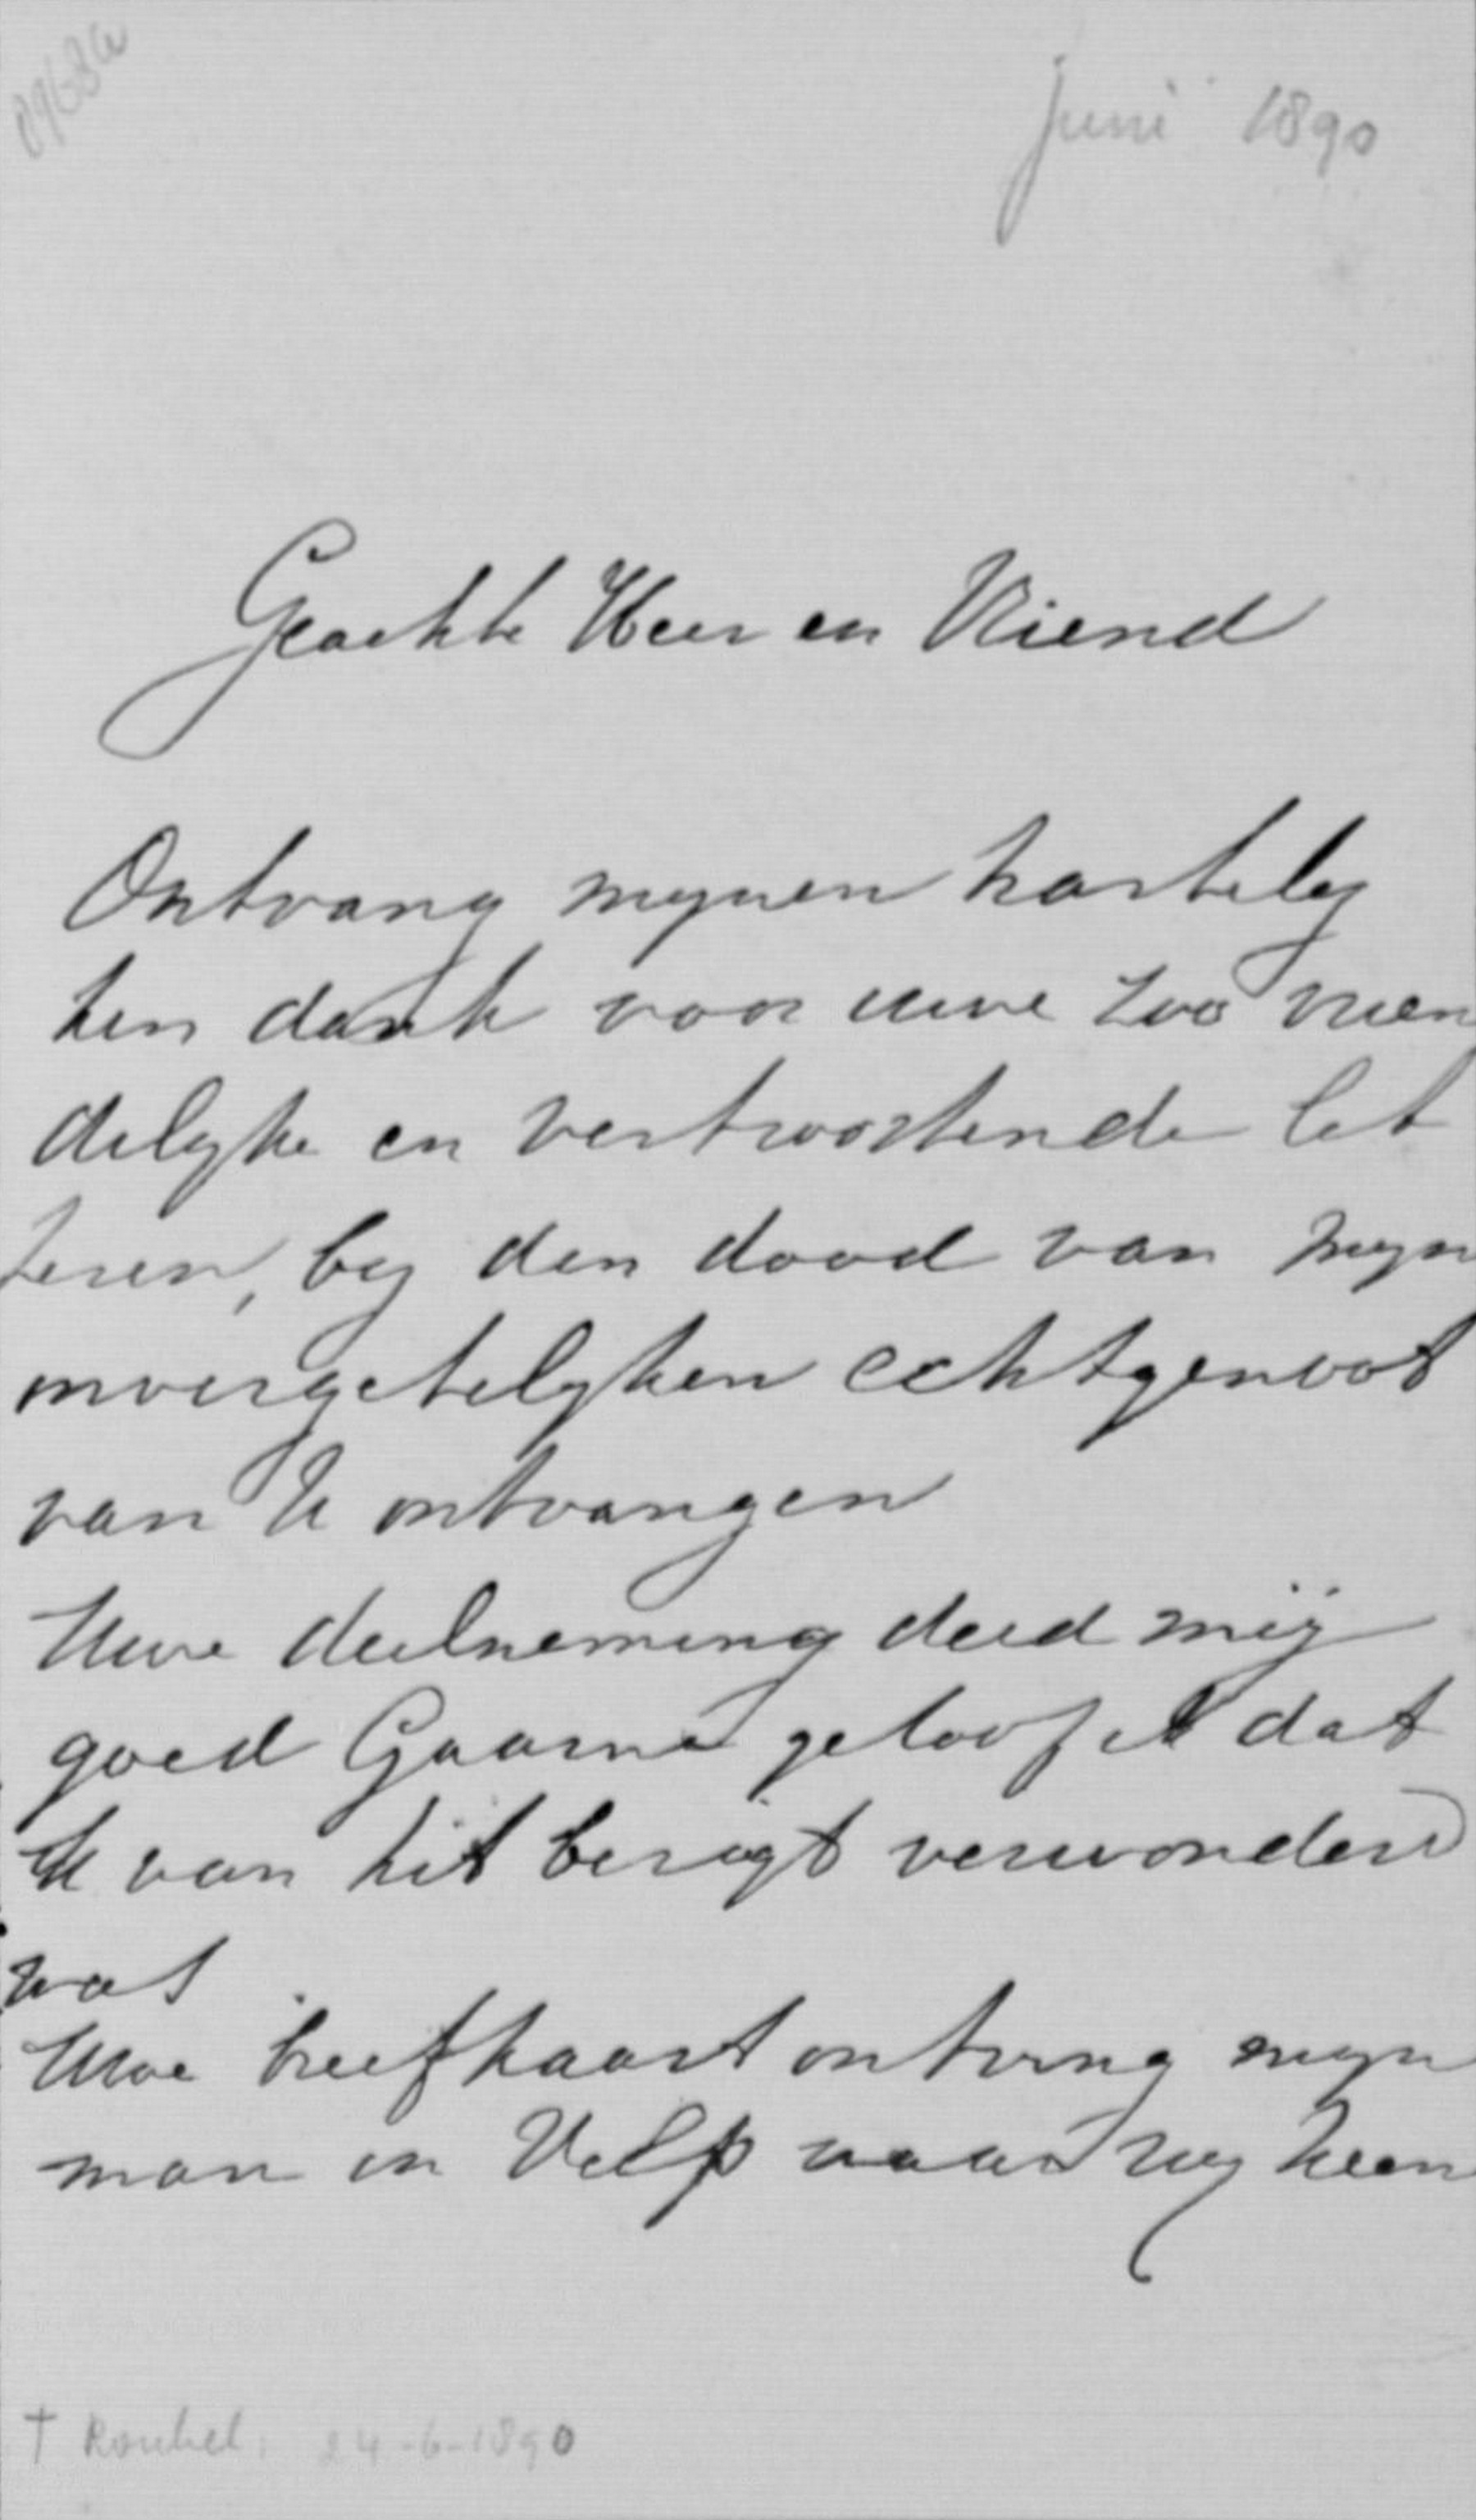 Juni 1890
Geachte Heer en Vriend
Ontvang mynen hartely
ken dank voor uwe zoo vrien
delyke en vertroostende let
teren, by den dood van myn
onvergetelyken echtgenoot
van U ontvangen
Uwe deelneming deed mij
goed Gaarne geloof ik dat
U van hit berigt verwonderd
was
Uwe briefkaart ontving myn
man in Velp waar wy heen
† Roubel. 24-6-1890